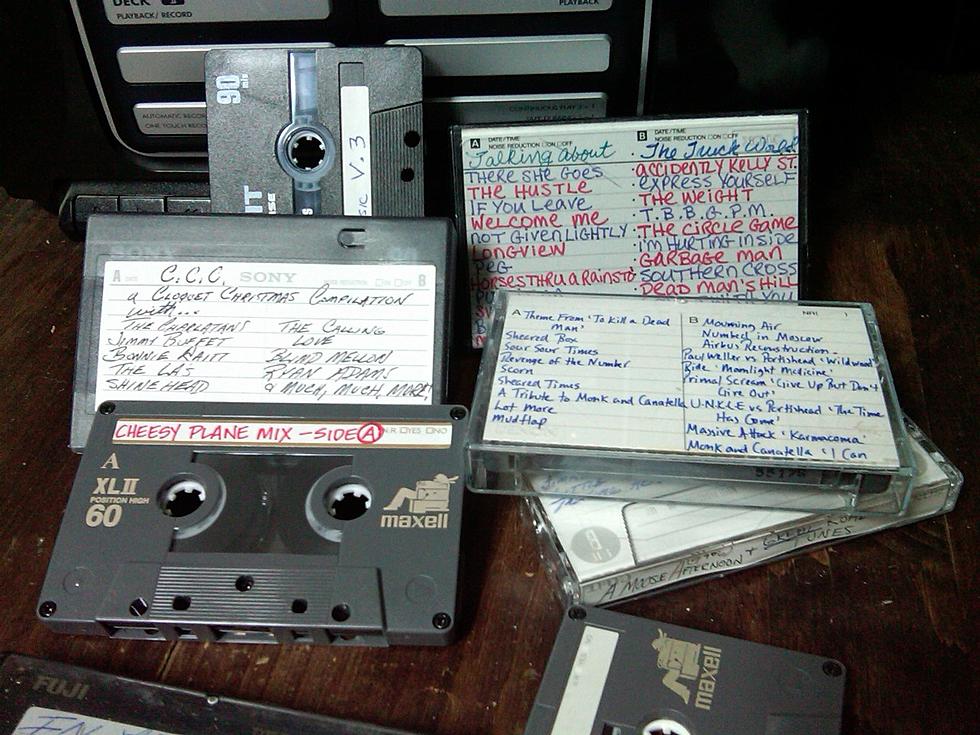 DECK
PLAYBACK/ RECORD
PLAYBACK
90 min
V.3
AUTOMATIC RECORD
ONE TOUCH RECO
CONTINUOUS PLAY
A DATE/TIME
NOISE REDUCTION □ON □OFF
Talking About
THERE SHE GOES
THE HUSTLE
IF YOU LEAVE
WELCOME ME
NOT GIVEN LIGHTLY
LONGVIEW
PEG
HORSES THRU A RAINSTO
B DATE/TIME
NOISE REDUCTION □ON □OFF
The Truck
ACCIDENTLY KELLY ST.
EXPRESS YOURSELF
THE WEIGHT
T.B.B.G.P.M.
THE CIRCLE GAME
I'M HURTING INSIDE
GARBAGE MAN
SOUTHERN CROSS
DEAD MAN'S HILL
YOU
A C.C.C. SONY B
a CLOQUET CHRISTMAS COMPILATION
with...
THE CHARLATANS THE CALLING
JIMMY BUFFET LOVE
BONNIE RAITT BLIND MELLON
THE LAS RYAN ADAMS
SHINEHEAD & MUCH, MUCH, MORE!
A Theme From 'To Kill a Dead
Man'
Sheared Box
Sour Sour Times
Revenge of the Number
Scorn
Sheared Times
A Tribute to Monk and Canatella
Lot More
Mudflap
B Mourning Air
Numbed in Moscow
Airbus Reconstruction
Paul Weller vs Portishead 'Wildwood'
Ride 'Moonlight Medicine'
Primal Scream 'Give Up But Don't
Give Out'
U.N.K.L.E vs Portishead 'The Time
Has Come'
Massive Attack 'Karmacoma'
Monk and Canatella 'I Can
CHEESY PLANE MIX - SIDE A N.R. □YES □NO
A
XLII
POSITION HIGH
60
maxell
A MOOSE AFTERNOON & GREAT ROAD
TUNES
FUJI
maxell